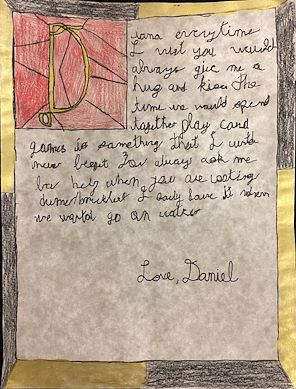 Diana everytime
I visit you would
always give me a
hug and kiss The
time we would spend
together play card
games is something that I will
never forget You always ask me
for help when you are cooking
dinner I really love it when
we would go on walks
Love, Daniel